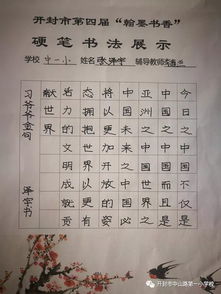 开封市第四届“翰墨书香”
硬笔书法展示
学校 中一小 姓名 张泽宇 辅导教师
今日之中国不仅是
中国之中国而且是
亚洲之中国世界之
中国未来之中国必
将以更加开放的姿
态拥抱世界以更有
活力的文明成就贡
献世界
习爷爷金句
泽宇书
开封市中山路第一小学校